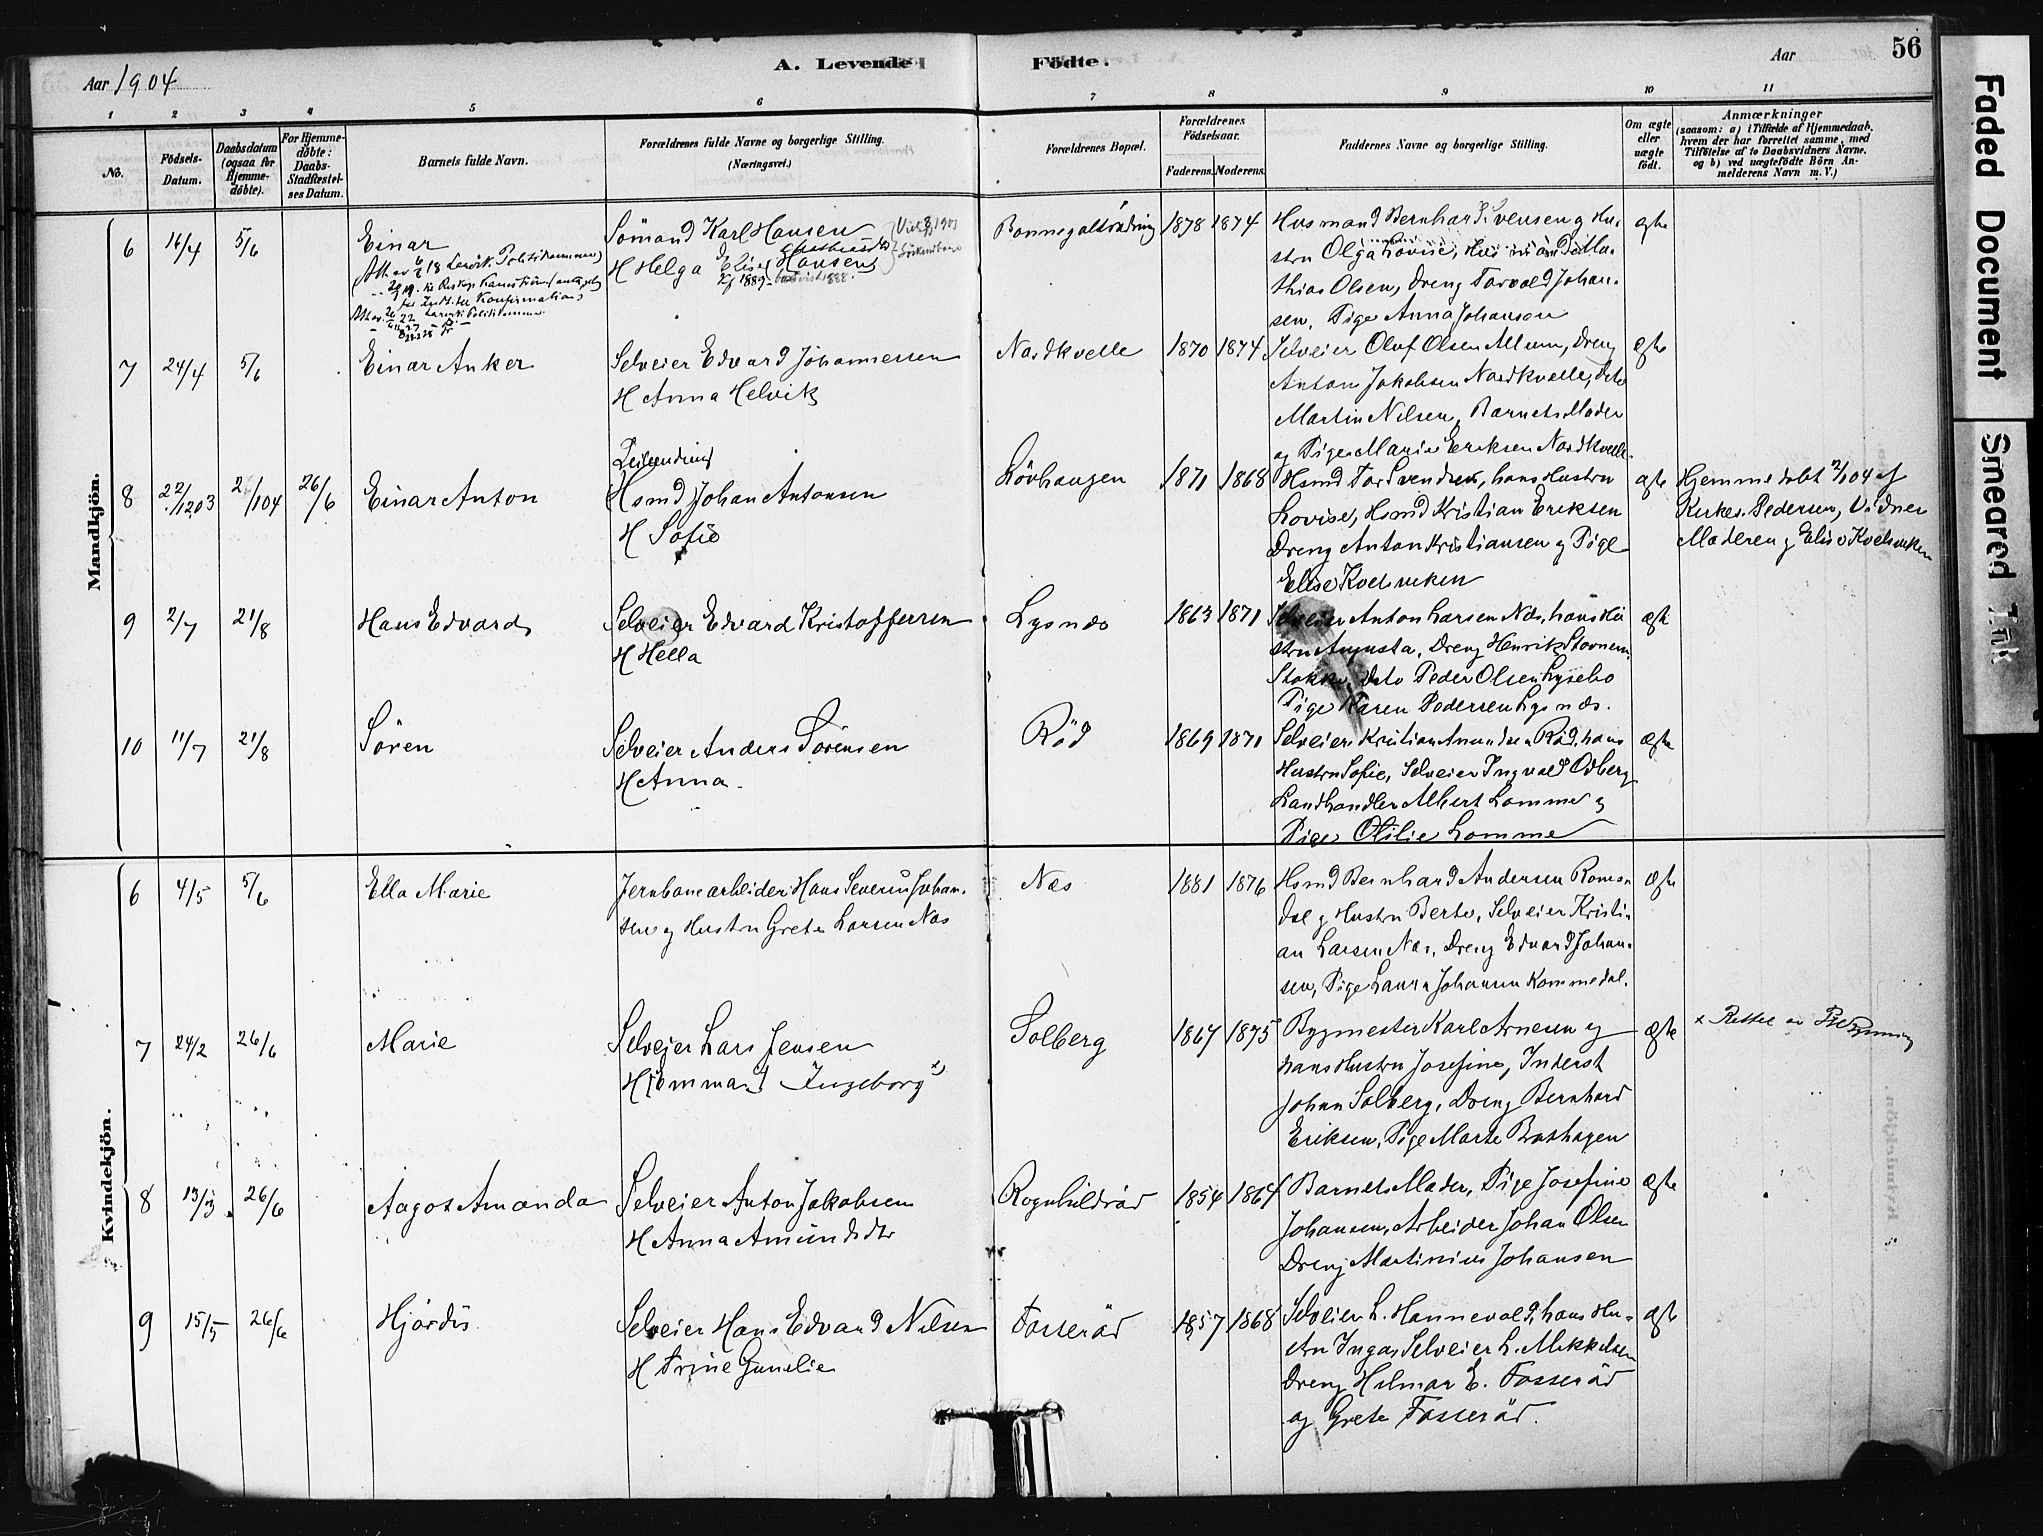 Aar 1904
A. Levende
Födte.
Aar
56
1 2 3 4 5 6 7 8 9 10 11
No.
Födsels-Datum.
Daabsdatum (ogsaa for Hjemme-döbte).
For Hjemme-döbte: Daabs-Stadfæstel-ses Datum.
Barnets fulde Navn.
Forældrenes fulde Navne og borgerlige Stilling. (Næringsvei.)
Forældrenes Bopæl.
Forældrenes Födselsaar.
Faderens. Moderens.
Faddernes Navne og borgerlige Stilling.
Om ægte eller uægte födt.
Anmærkninger
(saasom: a) i Tilfælde af Hjemmedaab,
hvem der har forrettet samme, med
Tilföielse af to Daabsvidners Navne.
og b) ved uægtefödte Börn An-
melderens Navn m. V.)
Mandkjön.
6 16/4 5/6 Einar
Sömand Karl Hansen
H Helga Elise Hansen
1878 1874
Husmand Bernhard Svensen og Hu-
stru Olga Lovise, Husmand Ma-
thias Olsen, Dreng Torvald Johan-
sen, Pige Anna Johansen
ægte
7 24/4 5/6 Einar Anker
Selveier Edvard Johannessen
H Anna Helvik
Nordkvelle
1870 1874
Selveier Oluf Olsen Allum, Dreng
Anton Jakobsen Nordkvelle, dito
Martin Nilsen, Barnets Moder
og Pige Marie Eriksen Nordkvelle
ægte
8 22/12 03 2/1 04 26/6 Einar Anton
Hsmd Johan Antonsen
H Sofie
Lövhaugen
1871 1868
Hsmd Tor Svendsen, hans Hustru
Lovise, Hsmd Kristian Eriksen
Dreng Anton Kristiansen og Pige
Elise Kvelsviken
ægte
Hjemmedöbt 2/1 04 af
Kirkes. Pedersen, Vidner
Moderen og Elise Kvelsviken
9 2/7 21/8 Hans Edvard
Selveier Edvard Kristoffersen
H Hella
Lysnæs
1863 1871
Selveier Anton Larsen Næs, hans Hu
stru Augusta, Dreng Henrik Stovnem.
Stokke, dito Peder Olsen Lysebo
Pige Karen Pedersen Lysnæs.
ægte
10 11/7 21/8 Sören
Selveier Anders Sörensen
H Anna.
Röd
1869 1871
Selveier Kristian Amundsen Röd, hans
Hustru Sofie, Selveier Ingvald Odberg
Landhandler Albert Lomme og
Pige Otilie Lomme
ægte
Kvindekjön.
6 4/5 5/6 Ella Marie
Jernbanearbeider Hans Severin Johan-
sen og Hustru Grete Larsen Næs
Næs
1881 1876
Hsmd Bernhard Andersen Roms-
dal og Hustru Berte, Selveier Kristi-
an Larsen Næs, Dreng Edvard Johan-
sen, Pige Laura Johansen Kommedal.
ægte
7 24/2 26/6 Marie
Selveier Lars Jensen
H Emma Ingeborg x)
Solberg
1867 1875
Bygmester Karl Arnesen og
hans Hustru Josefine, Inderst
Johan Solberg, Dreng Bernhard
Eriksen, Pige Marte Brathagen
ægte
x Rettet av
8 13/3 26/6 Aagot Amanda
Selveier Anton Jakobsen
H Anna Amundsdtr
Rognhildröd
1854 1864
Barnets Moder, Pige Josefine
Johansen, Arbeider Johan Olsen
Dreng Martinius Johansen
ægte
9 15/5 26/6 Hjördis
Selveier Hans Edvard Nilsen
H Trine Gunelie
Fosseröd
1857 1868
Selveier L. Hannevold, hans Hu-
stru Inga, Selveier L. Mikkelsen
Dreng Hilmar E. Fosseröd
og Grete Fosseröd.
ægte
Faded Document
Smeared Ink